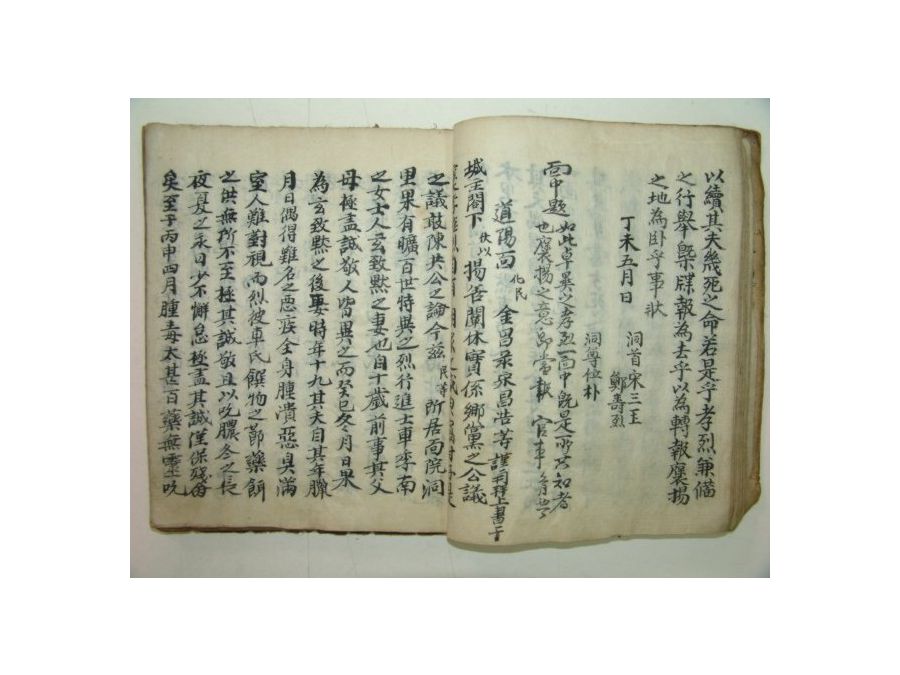 以續其夫幾死之命若是乎孝烈兼備
之行擧槩牒報爲去乎以爲轉報襃揚
之地爲卧乎事狀
丁未五月日
洞首宋三玉
鄭壽烈
洞尊位朴
面中題 如此卓異之孝烈面中旣是
也襃揚之意卽當報 官事
道陽面 化民 金昌 宋昌浩等謹再拜上書于
城主閤下 伏以 揚善闡休實係鄕黨之公議
之議敢陳共公之論今玆 民等 所居面院洞
里果有曠百世特異之烈行進士車季南
之女士人玄致默之妻也自十歲前事其父
母極盡誠敬人皆異之而癸巳冬月日果
爲玄致默之後妻時年十九其夫自其年臘
月日偶得難名之惡疾全身腫潰惡臭滿
室人難對視而烈彼車氏饌物之節藥餌
之供無所不至極其誠敬且以吮膿冬之長
夜夏之永日少不懈怠極盡其誠僅保殘命
矣至于丙申四月腫毒太甚百藥無靈吮